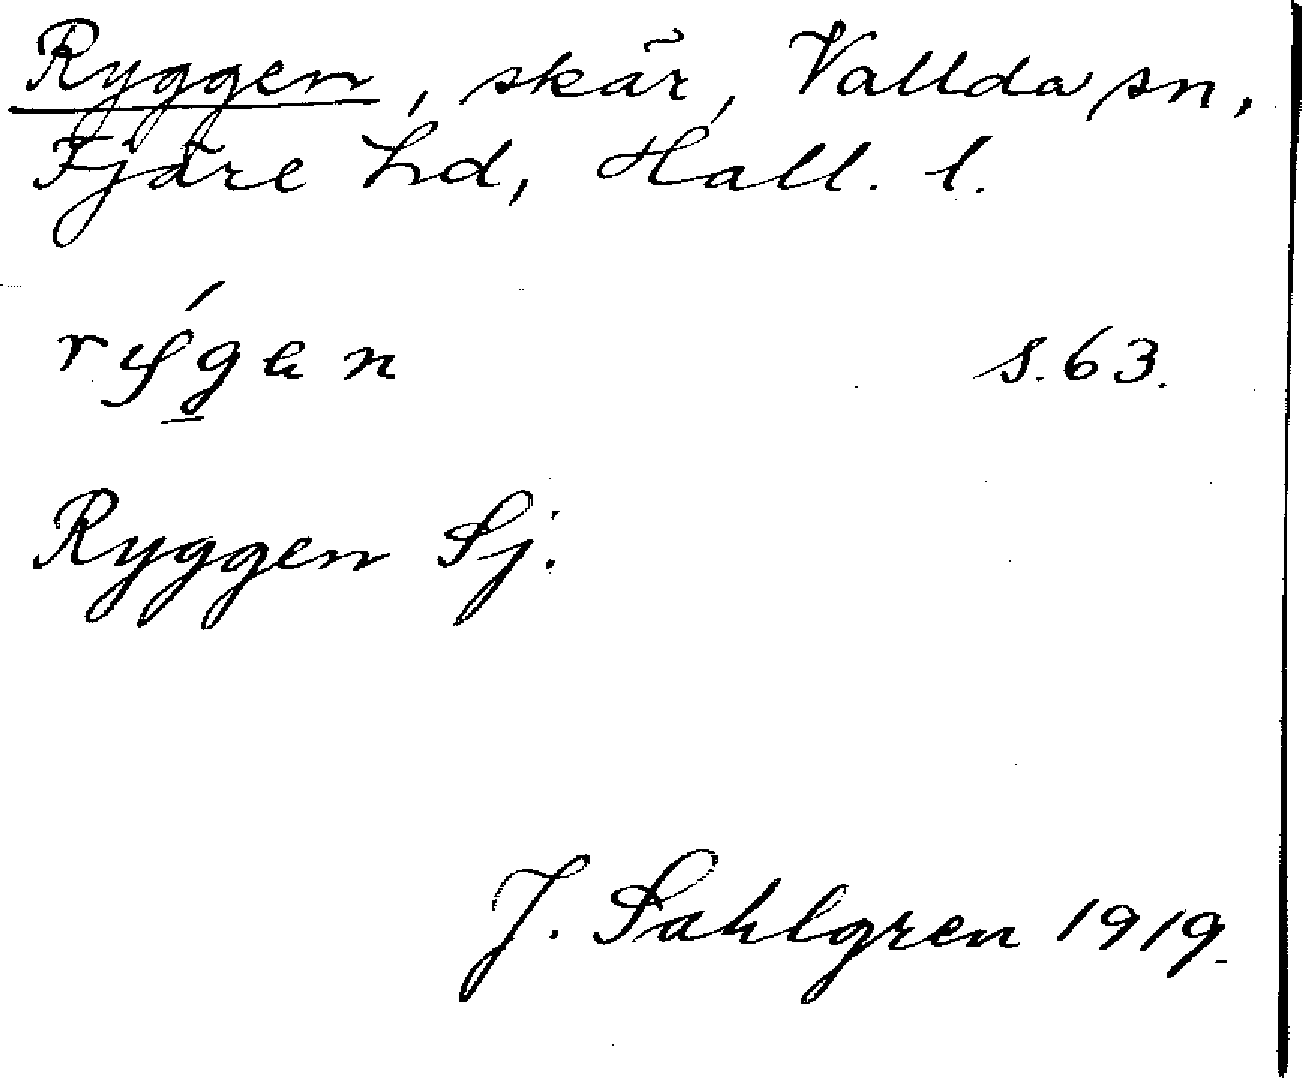 Ryggen, skär, Vallda sn,
Fjäre hd, Hall. l.
rýgen s. 63.
Ryggen Sj.
J. Sahlgren 1919.